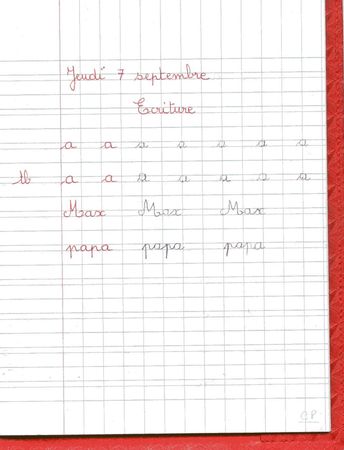 Jeudi 7 septembre
Ecriture
a a a a a a a
TB a a a a a a a
Max Max Max
papa papa papa
CP